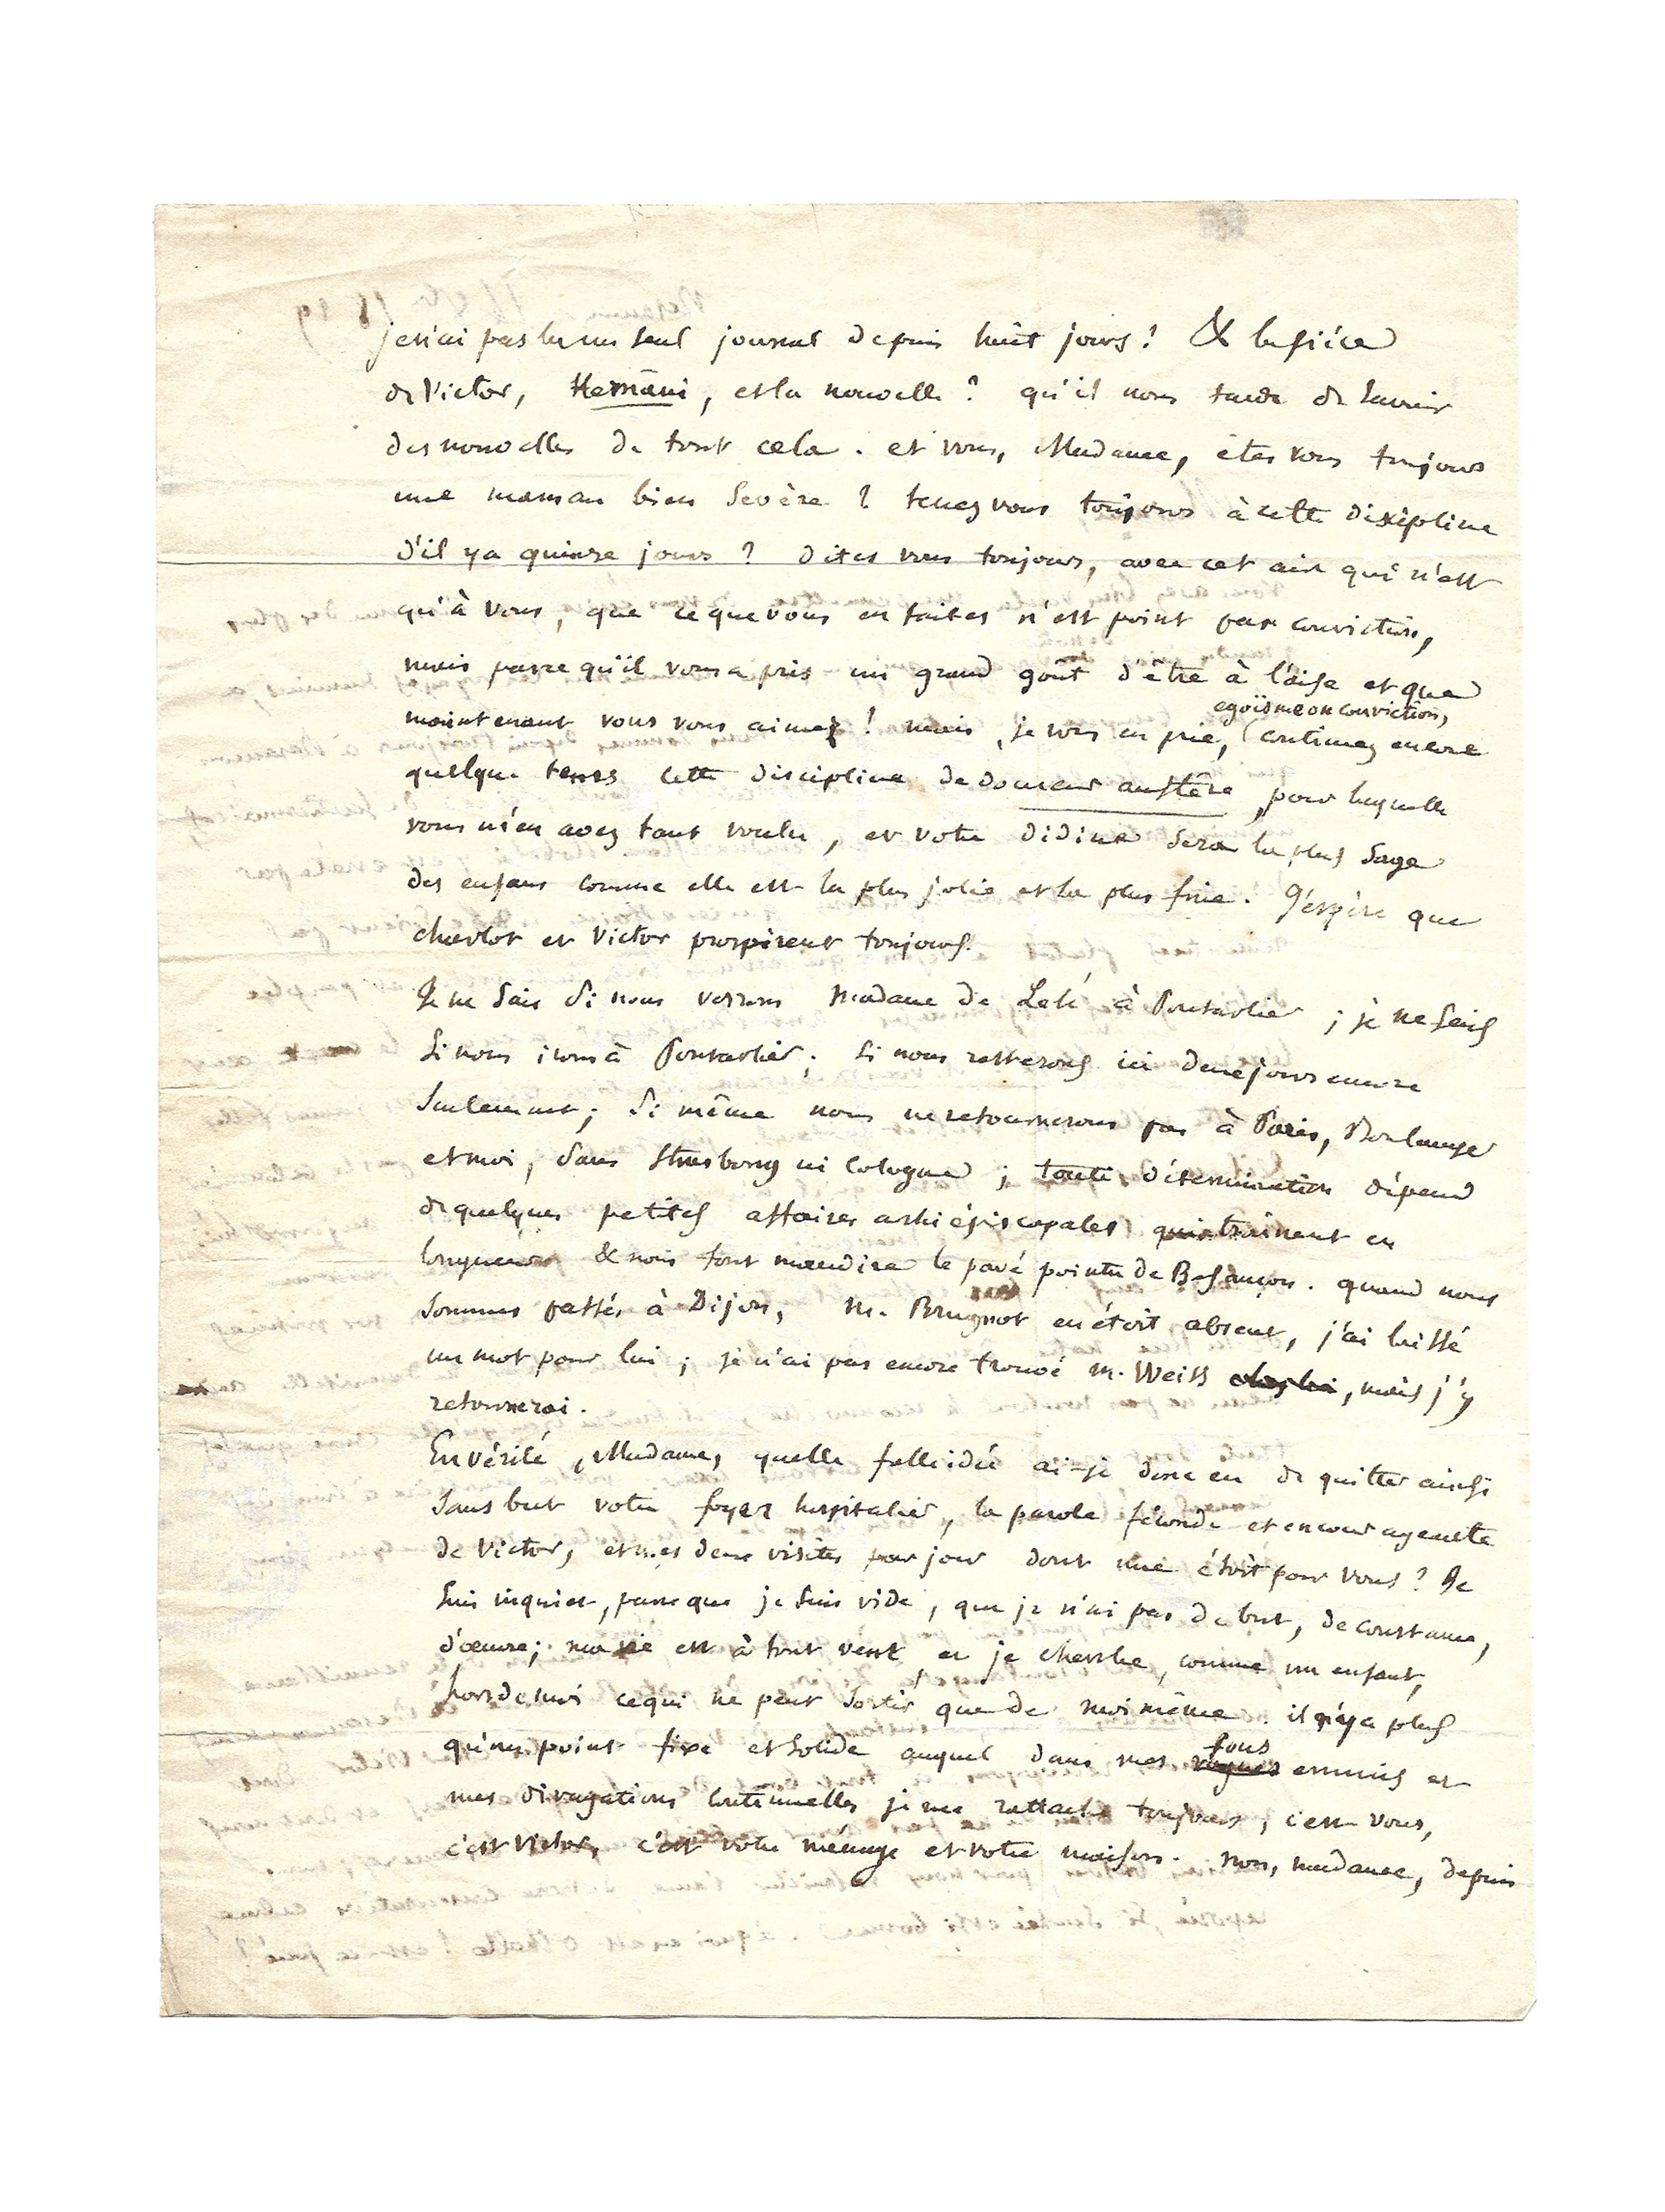 je n'ai pas lu un seul journal depuis huit jours! & la pièce
de Victor, Hernani, et la nouvelle? qu'il nous tarde de savoir
des nouvelles de tout cela. et vous, Madame, êtes vous toujours
une maman bien sevère? tenez vous toujours à cette discipline
d'il y a quinze jours? dites vous toujours, avec cet air qui n'est
qu'à vous, que ce que vous en faites n'est point par conviction,
mais parce qu'il vous a pris un grand goût d'être à l'aise et que
maintenant vous vous aimez! mais, je vous en prie, egoïsme ou conviction, continuez encore
quelque tems cette discipline de douceur austère, pour laquelle
vous m'en avez tant voulu, et votre didine sera la plus sage
des enfans comme elle est la plus jolie et la plus fine. J'espère que
charlot et Victor prospèrent toujours.
Je ne sais si nous verrons Madame de Lelé à Pontarlier; je ne sais
si nous irons à Pontarlier; si nous resterons ici deux jours encore
seulement; si même nous ne retournerons pas à Paris, Boulanger
et moi, sans Strasbourg ni Cologne; toute détermination dépend
de quelques petites affaires archiépiscopales qui traînent en
longueur & nous font maudire le pavé pointu de Besançon. quand nous
sommes passés à Dijon, M. Brugnot en étoit absent, j'ai laissé
un mot pour lui; je n'ai pas encore trouvé M. Weiss chez lui, mais j'y
retournerai.
En vérité, Madame, quelle folle idée ai-je donc eu de quitter ainsi
sans but votre foyer hospitalier, la parole féconde et encourageante
de Victor, et mes deux visites par jour dont une étoit pour vous? Je
suis inquiet, parce que je suis vide, que je n'ai pas de but, de constance,
d'œuvre; ma vie est à tout vent, et je cherche, comme un enfant,
hors de moi ce qui ne peut sortir que de moi même. il n'y a plus
qu'un point fixe et solide auquel dans mes vagues fous ennuis et
mes divagations continuelles je me rattache toujours; c'est vous,
c'est Victor, c'est votre ménage et votre maison. Non, madame, depuis